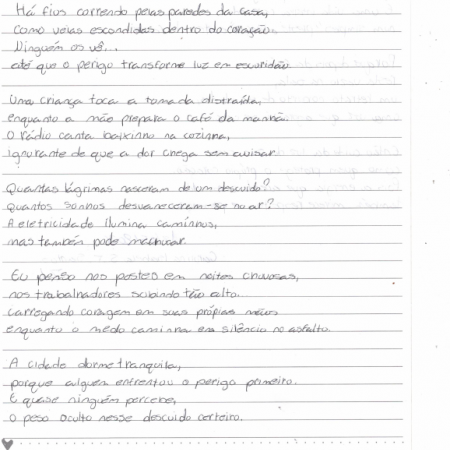 Há fios correndo pelas paredes da casa,
como veias escondidas dentro do coração.
Ninguém os vê...
até que o perigo transforme luz em escuridão.
Uma criança toca a tomada distraída,
enquanto a mãe prepara o café da manhã.
O rádio canta baixinho na cozinha,
ignorante de que a dor chega sem avisar.
Quantas lágrimas nasceram de um descuido?
Quantos sonhos desvaneceram-se no ar?
A eletricidade ilumina caminhos,
mas também pode machucar.
Eu penso nos postes em noites chuvosas,
nos trabalhadores subindo tão alto.
Carregando coragem em suas próprias mãos
enquanto o medo caminha em silêncio no asfalto.
A cidade dorme tranquila,
porque alguém enfrentou o perigo primeiro.
E quase ninguém percebe,
o peso oculto nesse descuido certeiro.